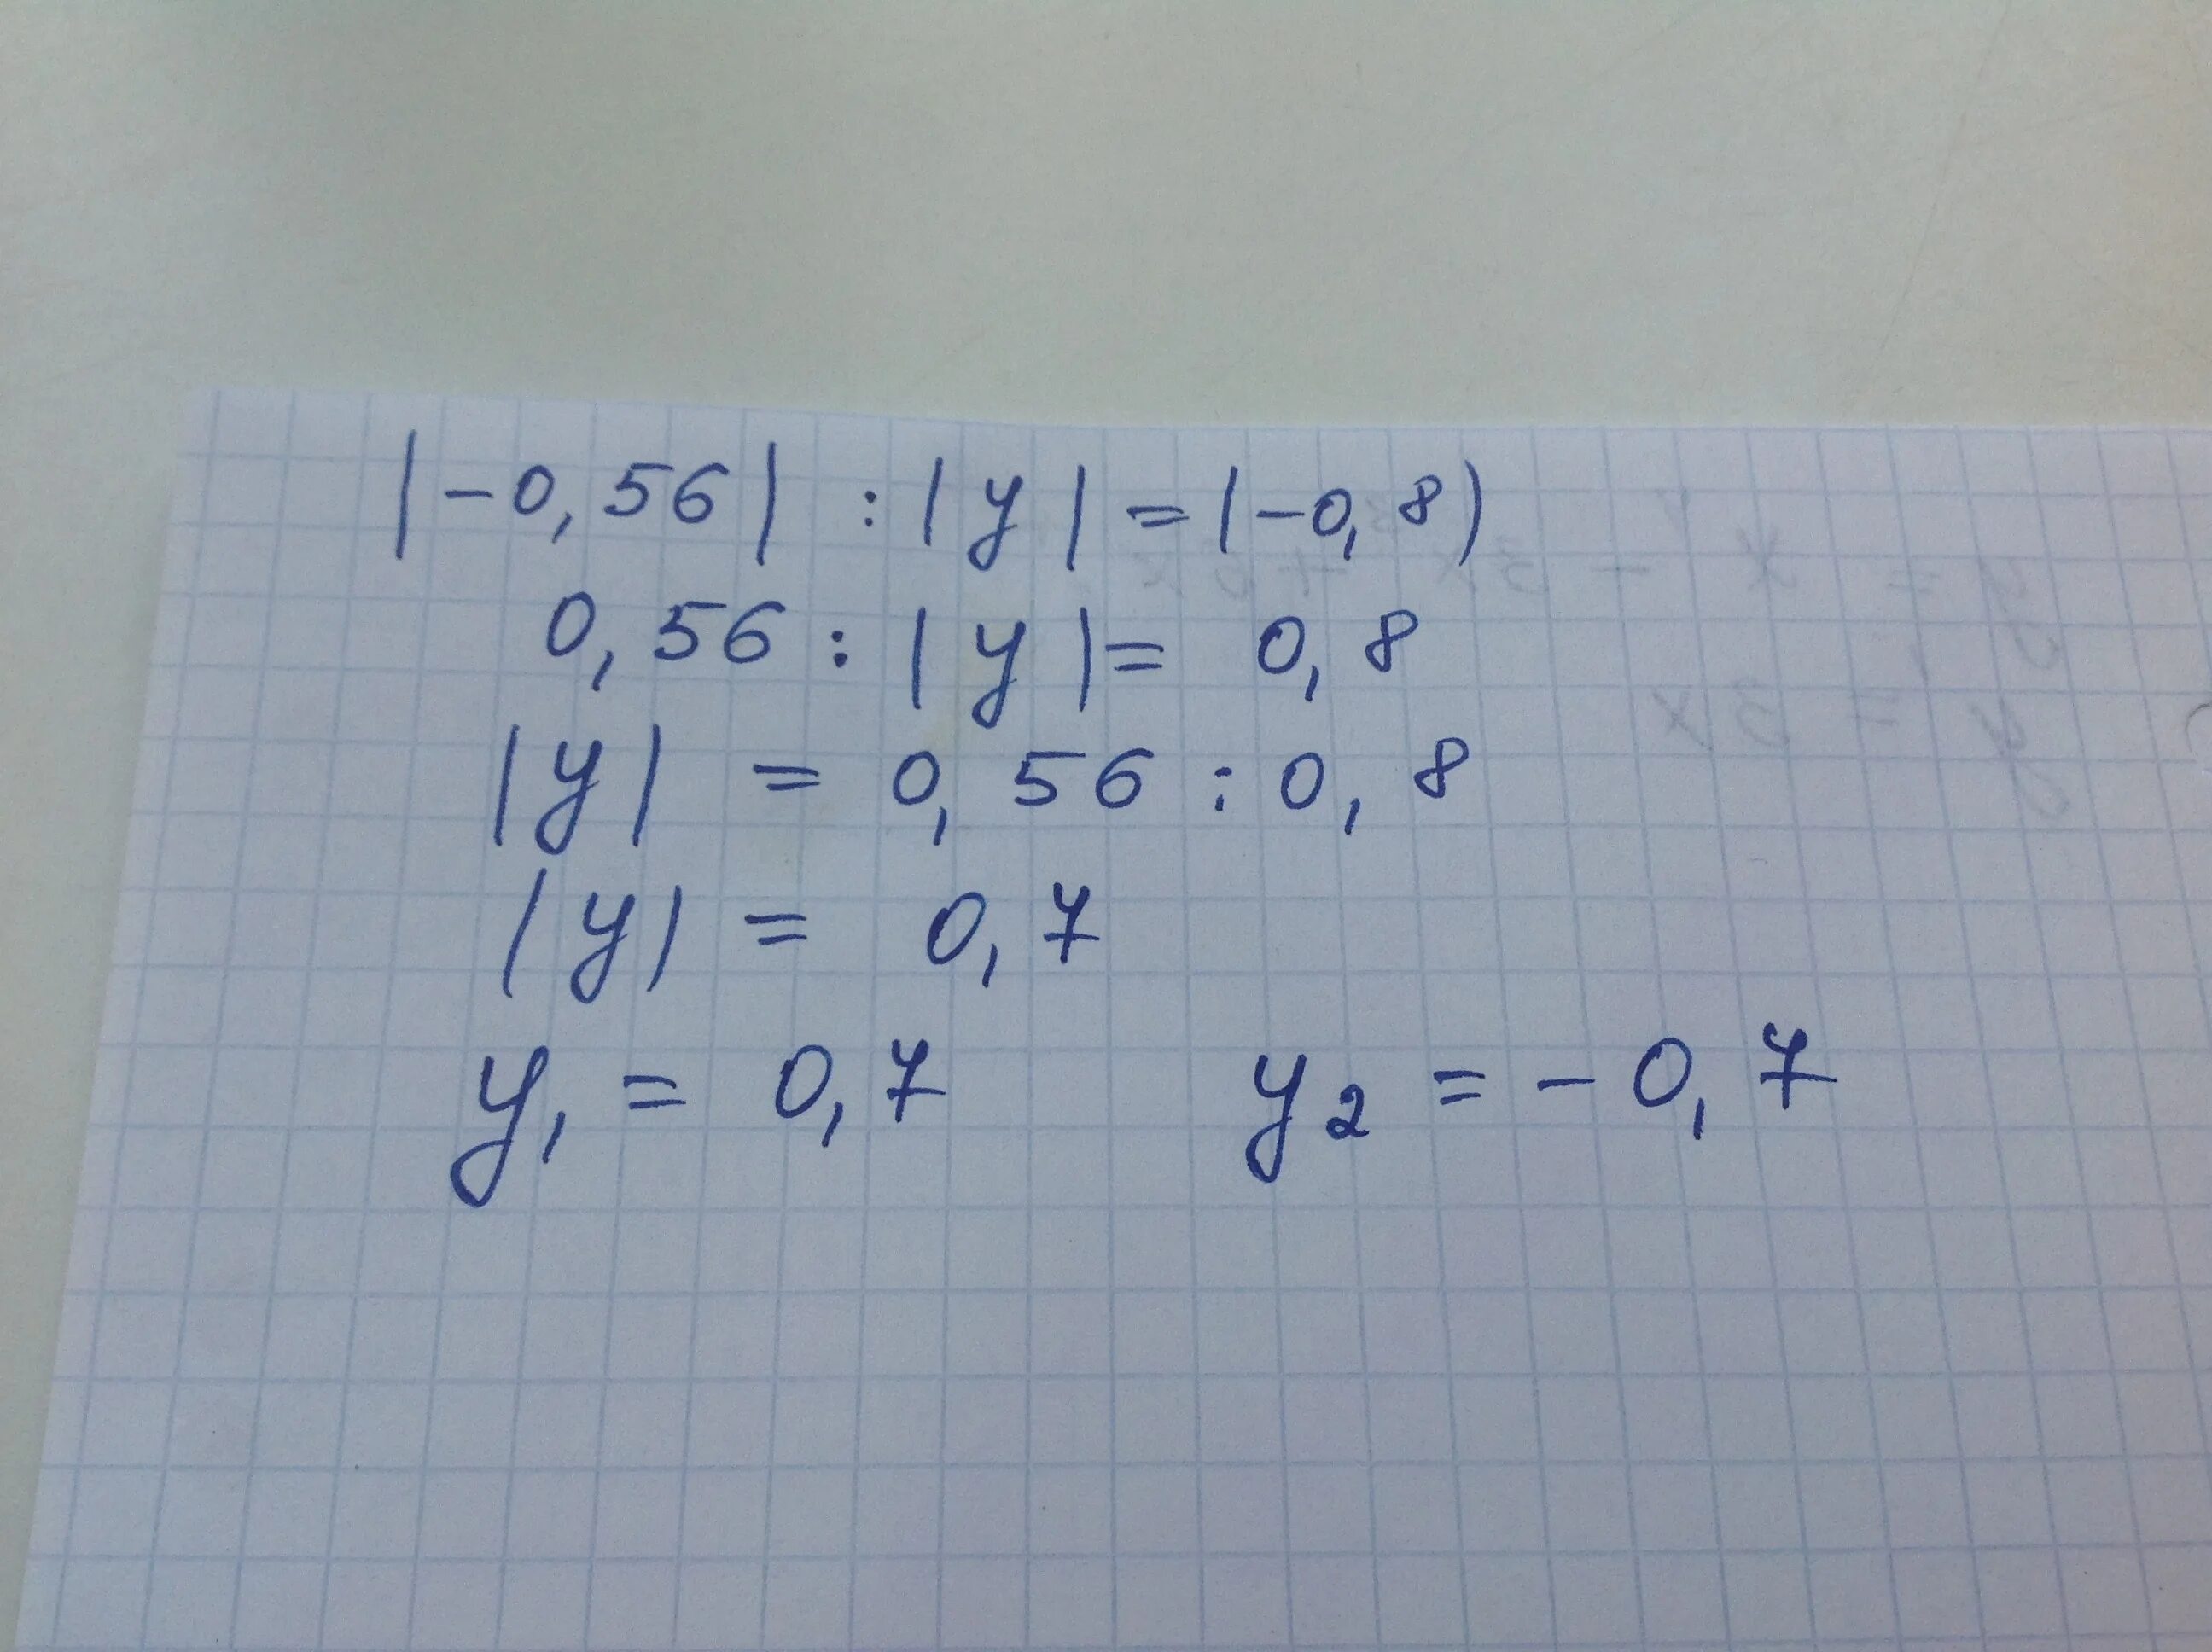 |-0,56| : |y| = |-0,8)
0,56 : |y| = 0,8
|y| = 0,56 : 0,8
|y| = 0,7
y₁ = 0,7 y₂ = -0,7